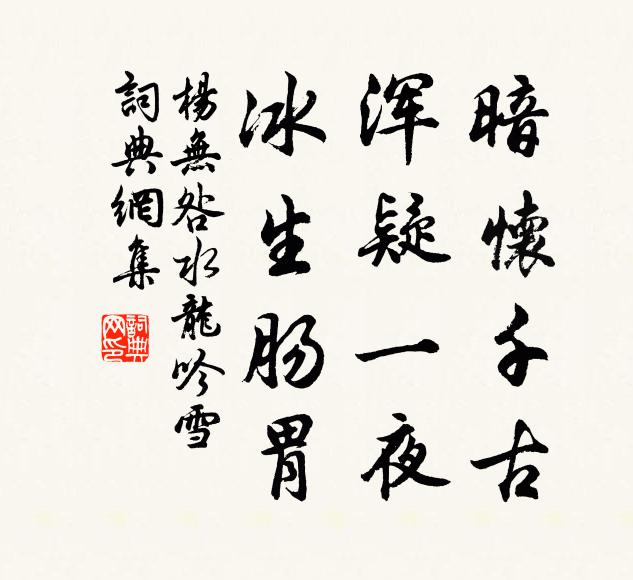 暗懷千古
浑疑一夜
冰生肠胃
楊無咎水龍吟雪
詞典網集
詞典网印